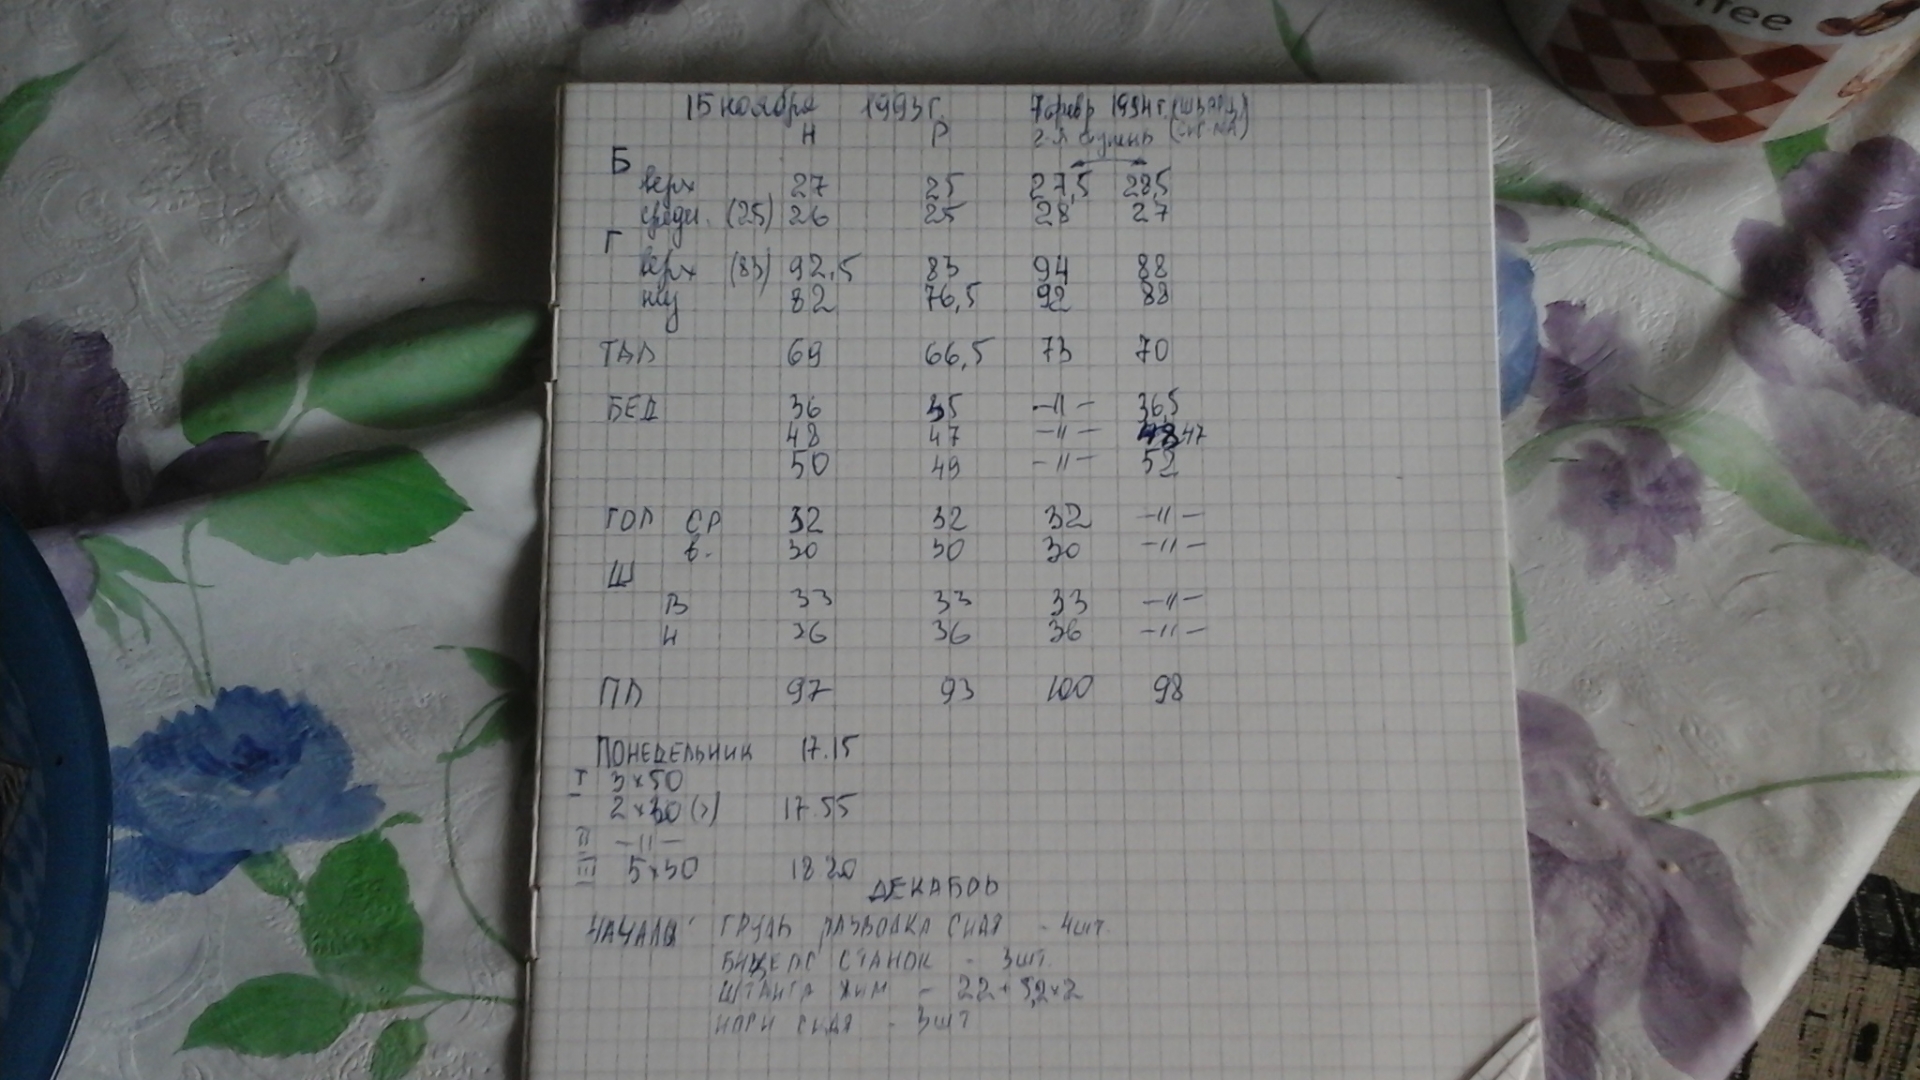 ffee
15 ноября 1993г. 7 февр 1994г.
Н Р
Б
верх 27 25 27,5 28,5
средн. (25) 26 25 28 27
Г
верх (83) 92,5 83 94 88
82 76,5 92 88
ТАЛ 69 66,5 73 70
БЕД 36 35 -〃- 36,5
48 47 -〃- 47
50 49 -〃- 52
ГОЛ СР 32 32 32 -〃-
в. 30 30 30 -〃-
Ш
В 33 33 33 -〃-
Н 36 36 36 -〃-
ПЛ 97 93 100 98
ПОНЕДЕЛЬНИК 17.15
I 3×50
2×30 17.55
II -〃-
III 5×50 18 20
ДЕКАБРЬ
НАЧАЛО: ГРУДЬ РАЗВОДКА СИДЯ - 4шт.
БИЦЕПС СТАНОК - 3шт.
ШТАНГА ЖИМ - 22+5,2×2
НОГИ СИДЯ - 3шт